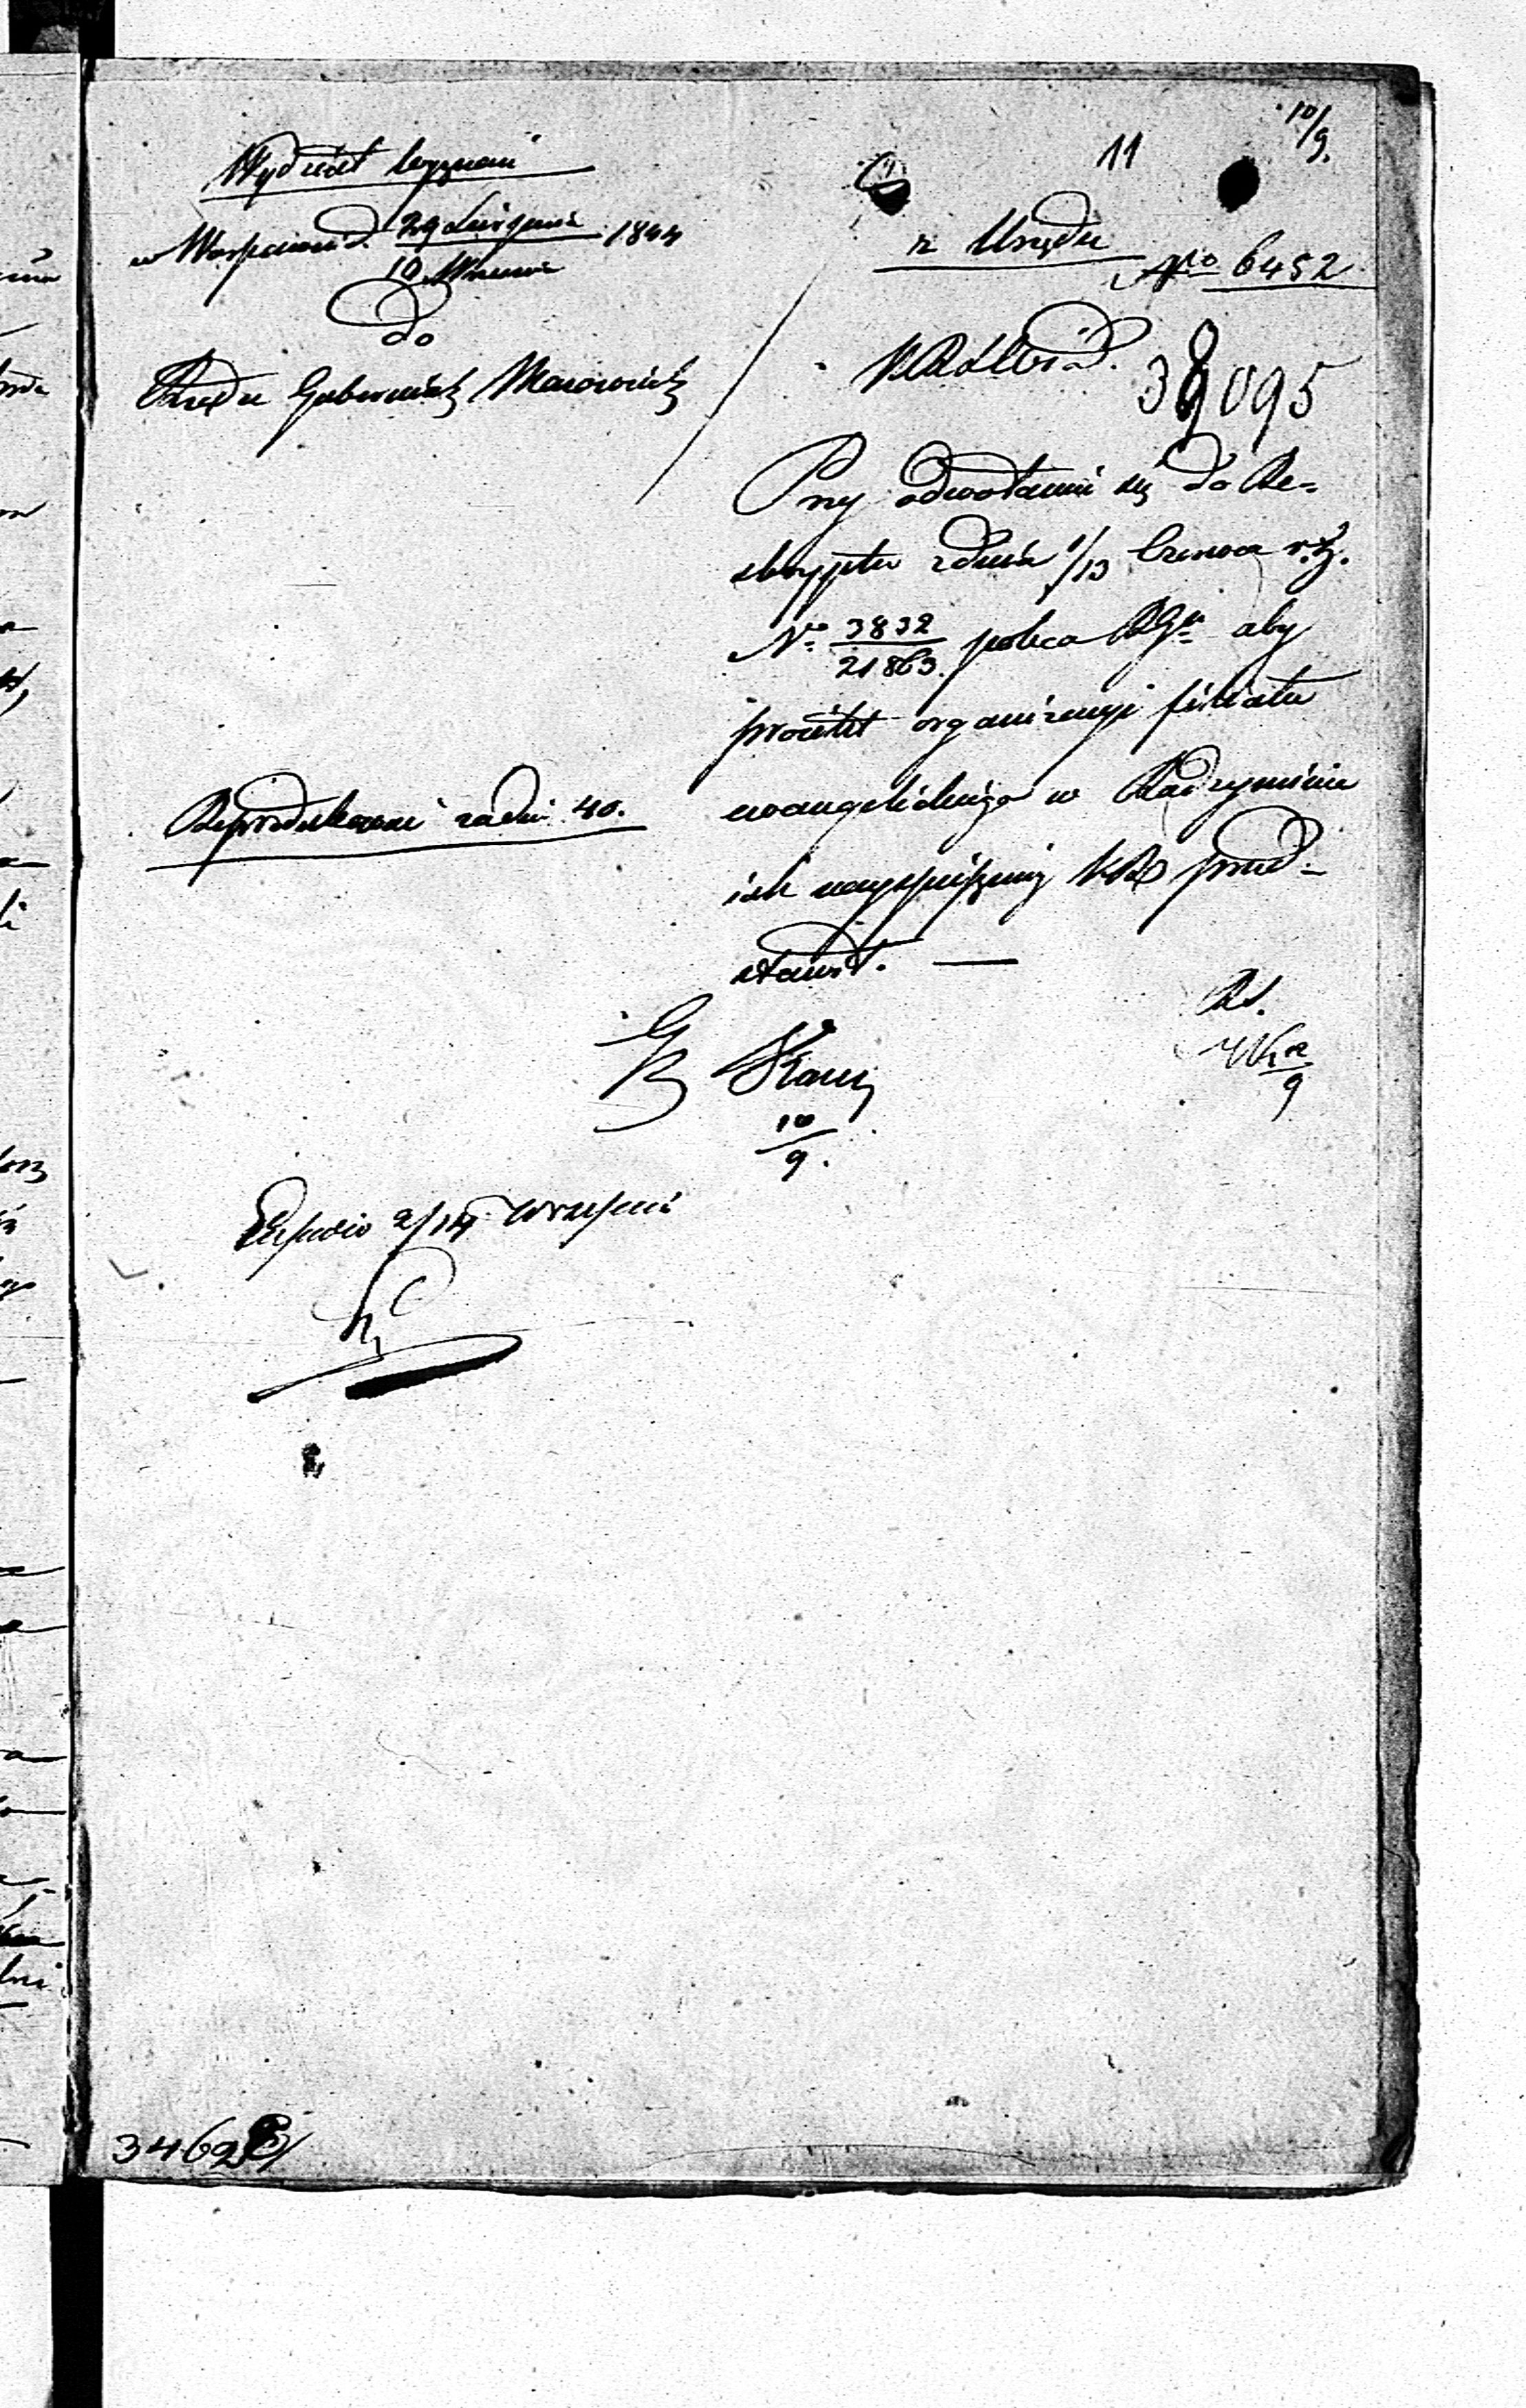 10/9.
11
Wydział Wyznań
w Warszawie d. 29 Sierpnia / 10 Wrześnie 1844
do
Rządu Gubernialz Mazowieck
z Urzędu
Nro 6452
38095
Przy odwołaniu się do Re-
skryptu z dnia 1/13 Czerwca r. b.
No 3832/21863. poleca RGu aby
projekt organizacyi filiału
ewangelickiego w Radzyminie
jak najspieszniej KR przed-
stawił. —
Reprodukować za dni 40.
RS.
10/9.
Expedio 2/14 Września
3462